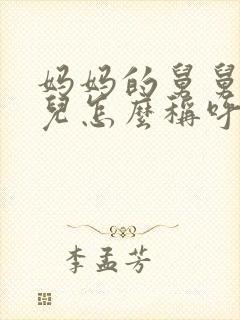 妈妈的舅舅
兒怎麼稱呼
李孟芳